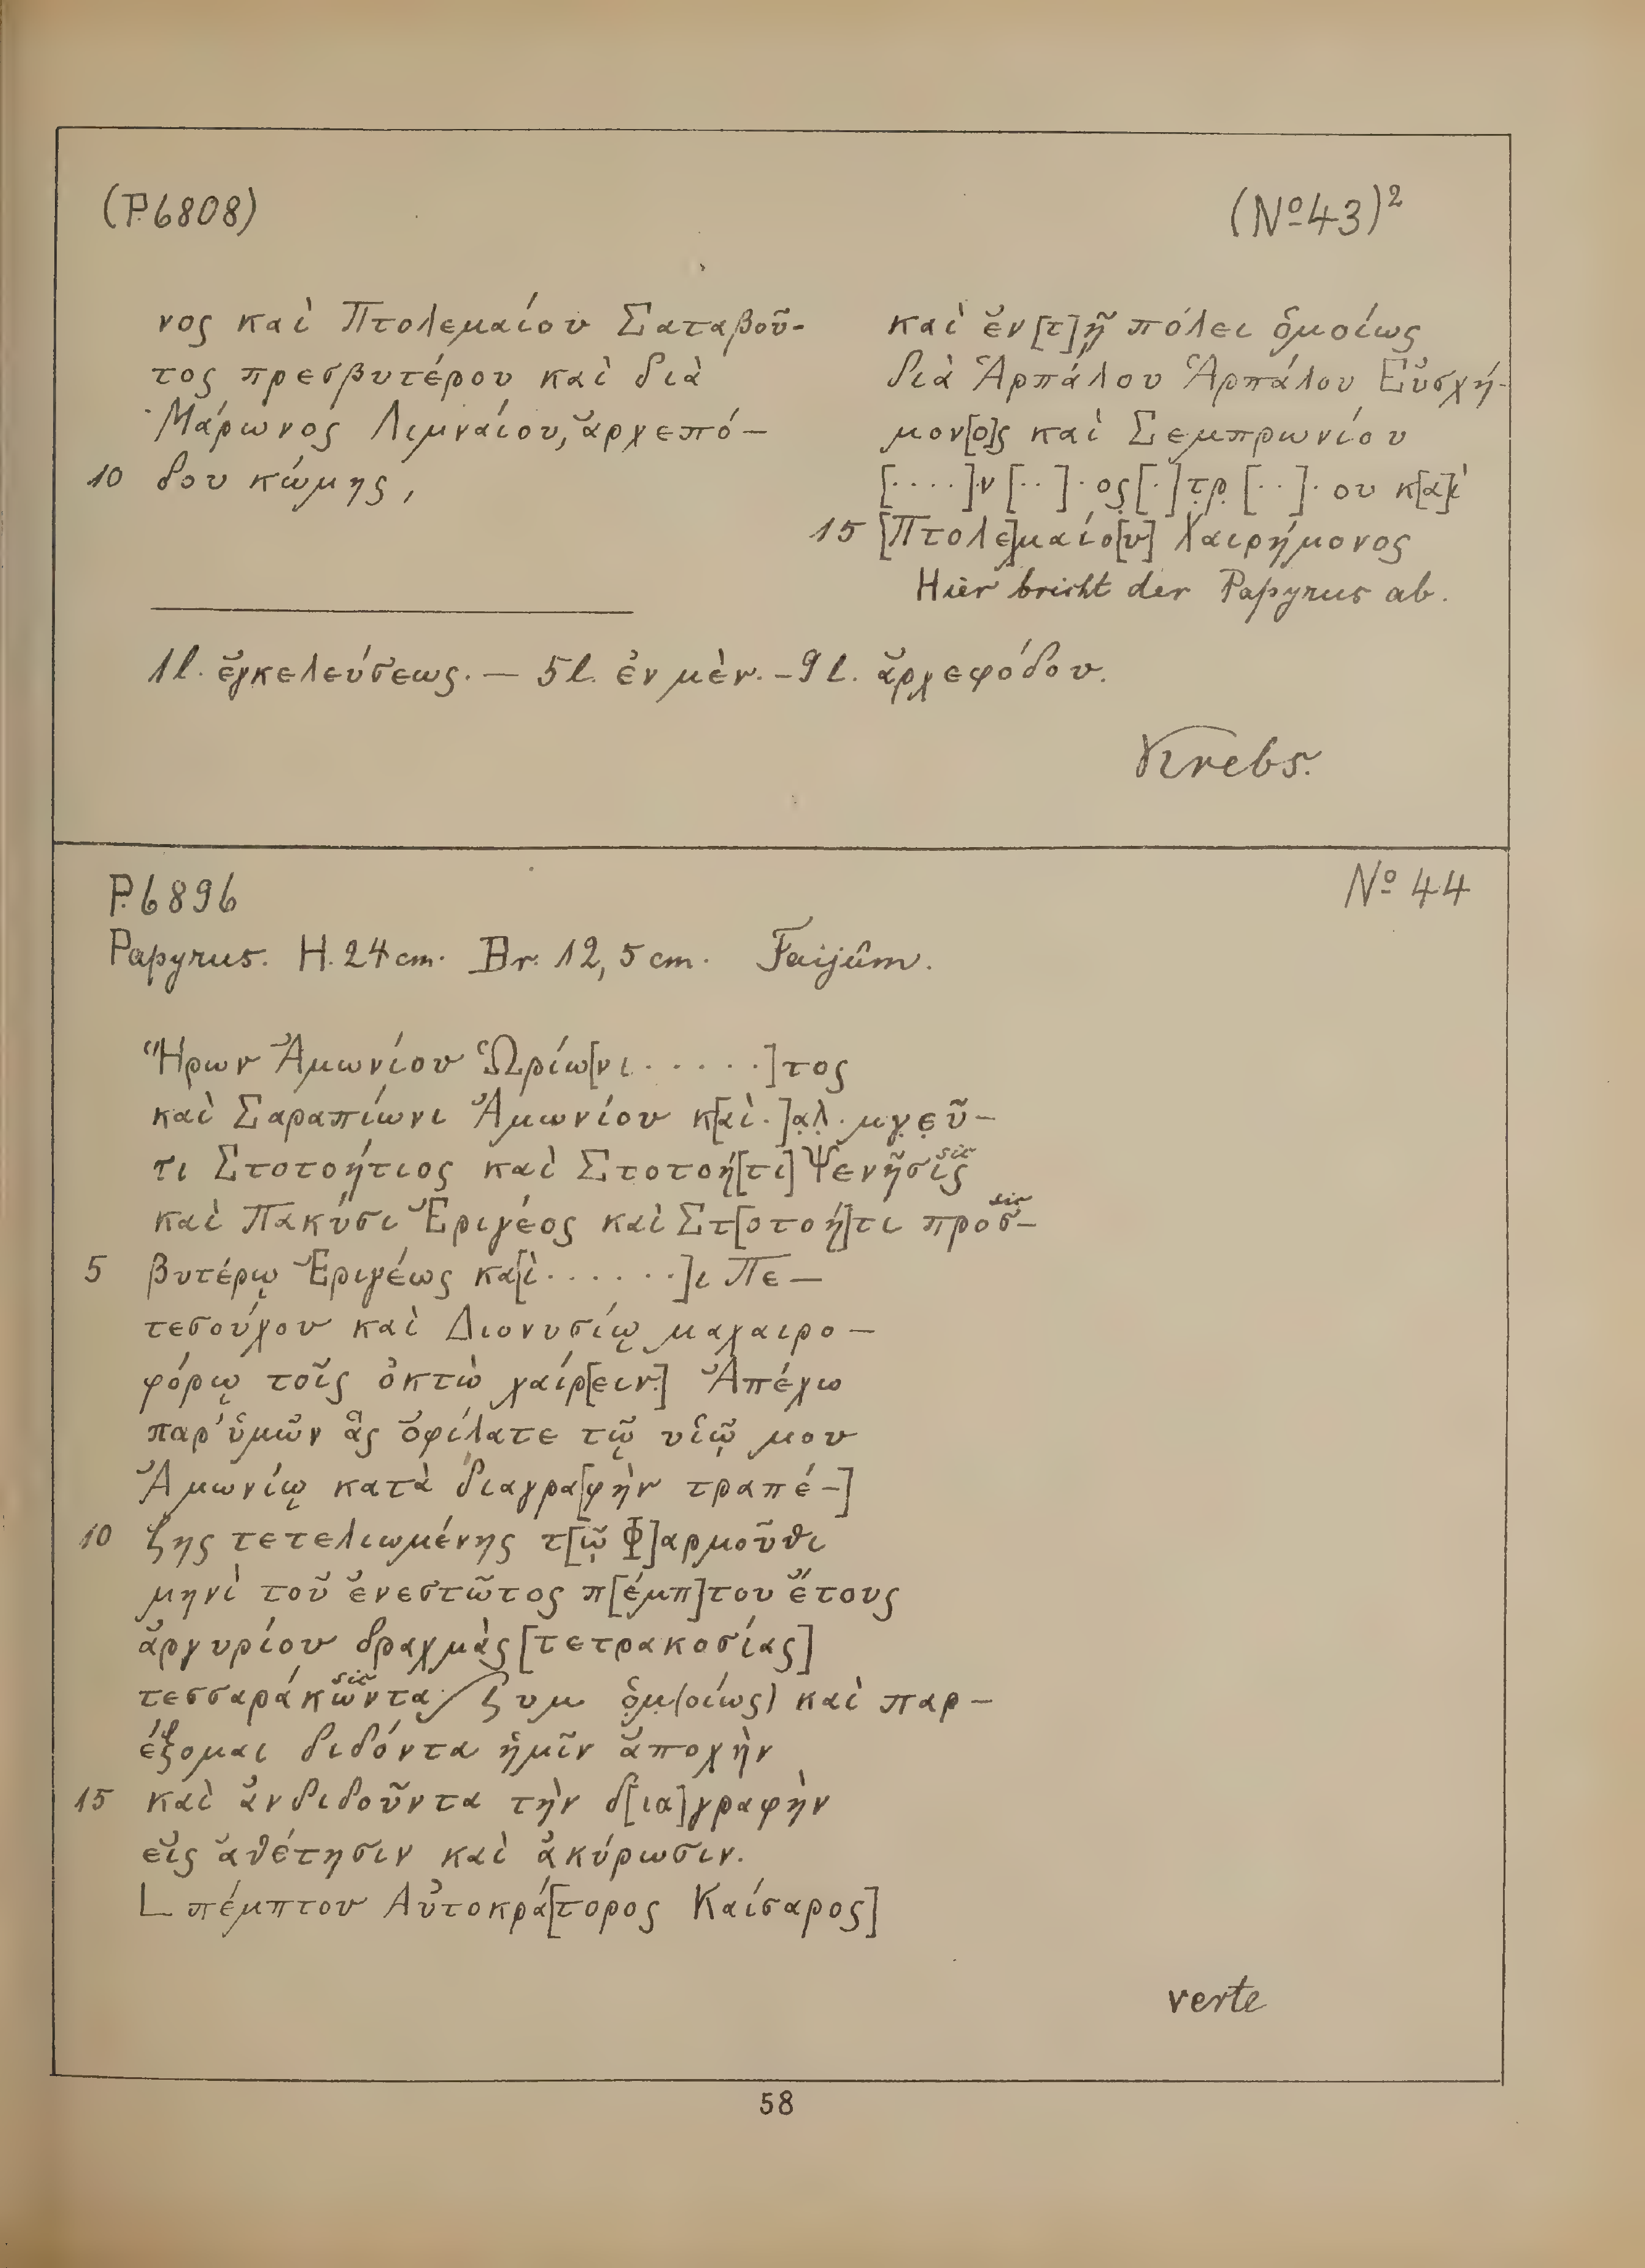 (P. 6808)
(Nº 43)²
νος καὶ Πτολεμαίου Σαταβοῦ-
τος πρεσβυτέρου καὶ διὰ
Μάρωνος Λιμναίου, ἀρχεπό-
10 δου κώμης,
καὶ ἐν [τ]ῇ πόλει ὁμοίως
διὰ Ἁρπάλου Ἁρπάλου Εὐσχή-
μον[ο]ς καὶ Σεμπρωνίου
[....]·ν[··]·ος̣[·]τ̣ρ̣[··]·ου κ[α]ὶ
15 [Πτολε]μαίο[υ] Χαιρήμονος
Hier bricht der Papyrus ab.
1 l. ἐγκελεύσεως. — 5 l. ἐν μὲν. - 9 l. ἀρχεφόδου.
Krebs.
P. 6896
Nº 44
Papyrus. H. 24 cm. Br. 12,5 cm. Faijûm.
Ἥρων Ἀμωνίου Ὡρίω[νι ······]τος
καὶ Σαραπίωνι Ἀμωνίου κ[αὶ ·]α̣λ̣·μγ̣ε̣ῦ-
τι Στοτοήτιος καὶ Στοτοή[τι] Ψενῆσις (sic)
καὶ Πακύσι Ἐριγέος καὶ Στ[οτοή]τι προσ- (sic)
5 βυτέρῳ Ἐριγέως κα[ὶ ······]ι Πε-
τεσούχου καὶ Διονυσίῳ μαχαιρο-
φόρῳ τοῖς ὀκτὼ χαίρ[ειν.] Ἀπέχω
παρ' ὑμῶν ἃς ὀφίλατε τῷ υἱῷ μου
Ἀμωνίῳ κατὰ διαγρα[φὴν τραπέ-]
10 ζης τετελιωμένης τ[ῷ Φ]αρμοῦθι
μηνὶ τοῦ ἐνεστῶτος π[έμπ]του ἔτους
ἀργυρίου δραχμὰς [τετρακοσίας]
τεσσαράκωντα (sic) / ζ υμ ὁ̣μ̣(οίως) καὶ παρ-
έξομαι διδόντα ἡμῖν ἀποχὴν
15 καὶ ἀνδιδοῦντα τὴν δ[ια]γραφὴν
εἰς ἀθέτησιν καὶ ἀκύρωσιν.
L πέμπτου Αὐτοκρά[τορος Καίσαρος]
verte
58